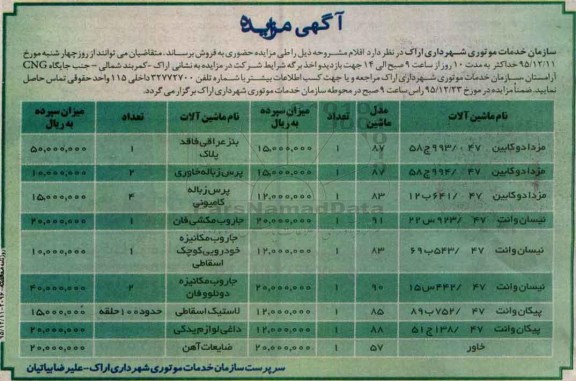 آگهی مزایده
سازمان خدمات موتوری شهرداری اراک در نظر دارد اقلام مشروحه ذیل را طی مزایده حضوری به فروش برساند. متقاضیان می توانند از روز چهارشنبه مورخ
۹۵/۱۲/۱۱ حداکثر به مدت ۱۰ روز از ساعت ۹ صبح الی ۱۴ جهت بازدید و اخذ برگه شرایط شرکت در مزایده به نشانی اراک - کمربند شمالی - جنب جایگاه CNG
آراستان - سازمان خدمات موتوری شهرداری اراک مراجعه و یا جهت کسب اطلاعات بیشتر با شماره تلفن ۳۲۷۷۲۷۰۰ داخلی ۱۱۵ واحد حقوقی تماس حاصل
نمایند. ضمناً مزایده در مورخ ۹۵/۱۲/۲۳ راس ساعت ۹ صبح در محوطه سازمان خدمات موتوری شهرداری اراک برگزار می گردد.
نام ماشین آلات مدل ماشین تعداد میزان سپرده به ریال نام ماشین آلات تعداد میزان سپرده به ریال
مزدا دو کابین ۴۷ / ۹۹۳ ج ۵۸ ۸۷ ۱ ۱۵,۰۰۰,۰۰۰ بنز عراقی فاقد پلاک ۱ ۵۰,۰۰۰,۰۰۰
مزدا دو کابین ۴۷ / ۹۹۴ ج ۵۸ ۸۷ ۱ ۱۵,۰۰۰,۰۰۰ پرس زباله خاوری ۲ ۱۰,۰۰۰,۰۰۰
مزدا دو کابین ۴۷ / ۶۴۱ ب ۱۲ ۸۳ ۱ ۱۲,۰۰۰,۰۰۰ پرس زباله کامیونی ۴ ۱۵,۰۰۰,۰۰۰
نیسان وانت ۴۷ / ۹۲۳ س ۲۲ ۹۱ ۱ ۲۰,۰۰۰,۰۰۰ جاروب مکشی فان ۱ ۲۰,۰۰۰,۰۰۰
نیسان وانت ۴۷ / ۵۴۳ ب ۶۹ ۸۳ ۱ ۱۲,۰۰۰,۰۰۰ جاروب مکانیزه خودرویی کوچک اسقاطی ۱ ۱۰,۰۰۰,۰۰۰
نیسان وانت ۴۷ / ۴۴۲ س ۱۵ ۹۰ ۱ ۲۰,۰۰۰,۰۰۰ جاروب مکانیزه دونلوو فان ۲ ۴۰,۰۰۰,۰۰۰
پیکان وانت ۴۷ / ۷۵۲ ب ۸۹ ۸۵ ۱ ۱۲,۰۰۰,۰۰۰ لاستیک اسقاطی حدود ۱۰۰ حلقه ۱۵,۰۰۰,۰۰۰
پیکان وانت ۴۷ / ۱۳۸ ج ۵۱ ۸۸ ۱ ۱۲,۰۰۰,۰۰۰ داغی لوازم یدکی ۲۰,۰۰۰,۰۰۰
خاور ۵۷ ۱ ۲۰,۰۰۰,۰۰۰ ضایعات آهن ۲۰,۰۰۰,۰۰۰
سرپرست سازمان خدمات موتوری شهرداری اراک - علیرضا بیاتیان